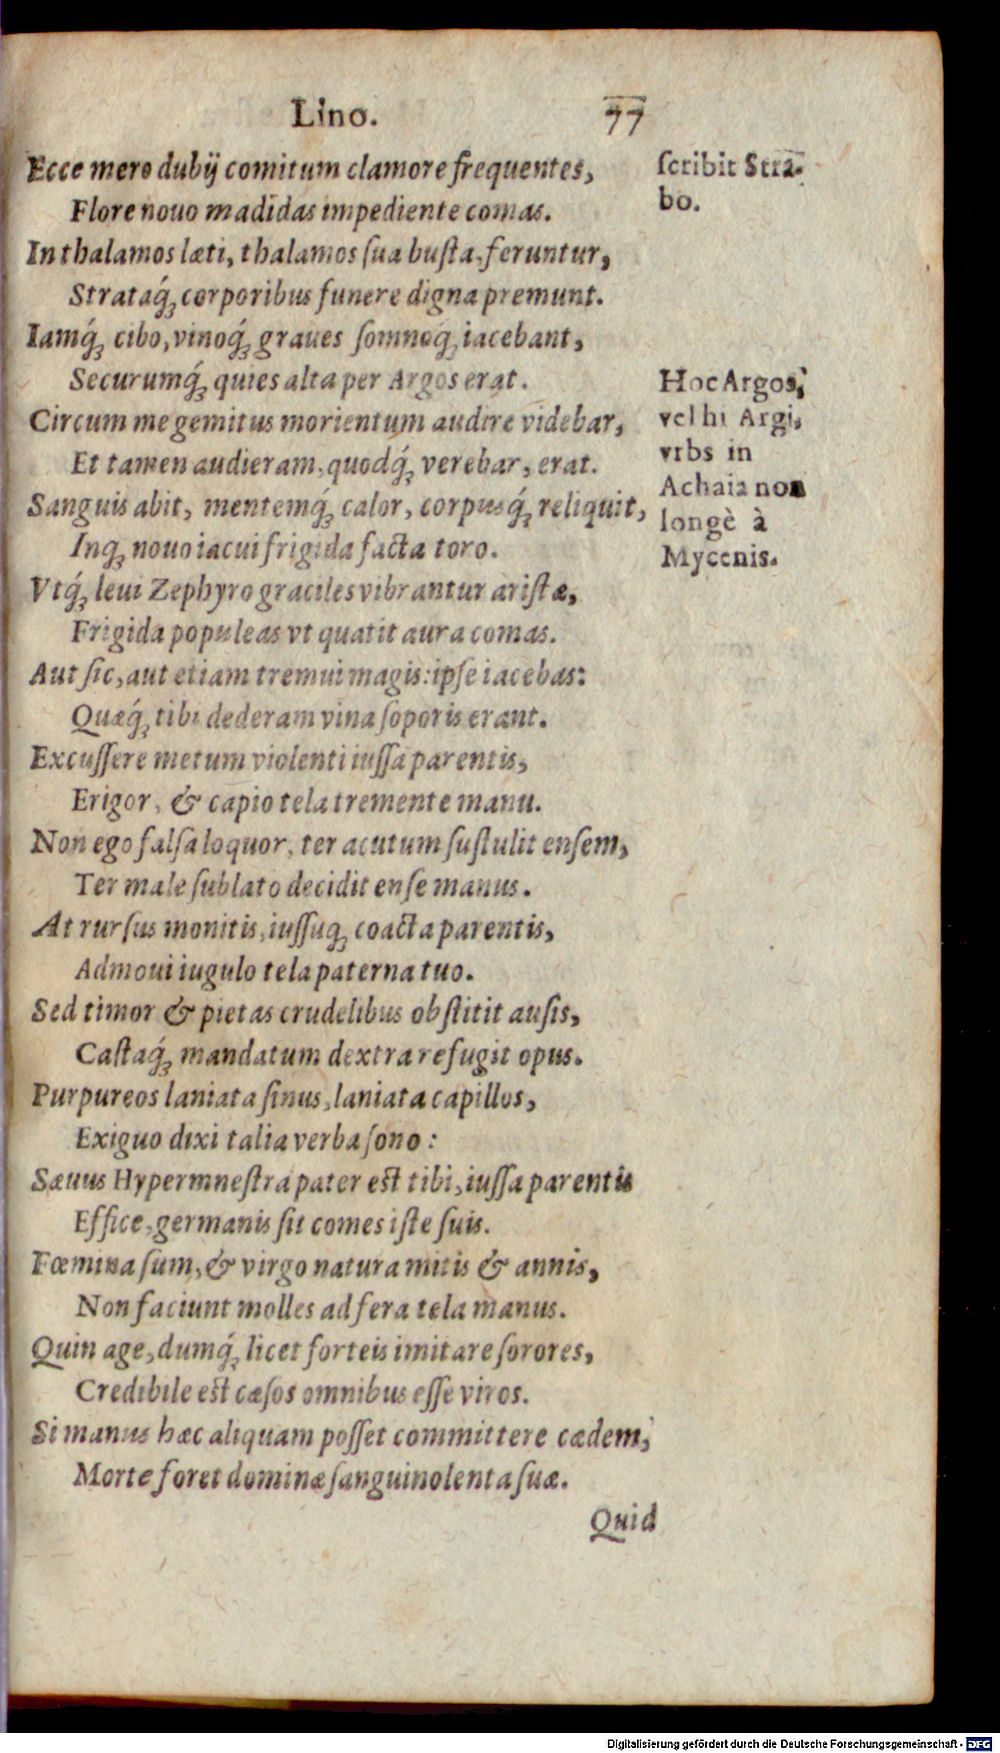 Lino. 77
Ecce mero dubij comitum clamore frequentes,
Flore nouo madidas impediente comas.
In thalamos læti, thalamos ſua buſta, feruntur,
Strataq́ue corporibus funere digna premunt.
Iamq́ue cibo, vinoq́ue graues ſomnoq́ue iacebant,
Securumq́ue quies alta per Argos erat.
Circum me gemitus morientum audire videbar,
Et tamen audieram, quodq́ue verebar, erat.
Sanguis abit, mentemq́ue calor, corpusq́ue reliquit,
Inque nouo iacui frigida facta toro.
Vtq́ue leui Zephyro graciles vibrantur ariſtæ,
Frigida populeas vt quatit aura comas.
Aut ſic, aut etiam tremui magis: ipſe iacebas:
Quæq́ue tibi dederam vina ſoporis erant.
Excuſſere metum violenti iuſſa parentis,
Erigor, & capio tela tremente manu.
Non ego falſa loquor, ter acutum ſuſtulit enſem,
Ter male ſublato decidit enſe manus.
At rurſus monitis, iuſſuque coacta parentis,
Admoui iugulo tela paterna tuo.
Sed timor & pietas crudelibus obſtitit auſis,
Caſtaq́ue mandatum dextra refugit opus.
Purpureos laniata ſinus, laniata capillos,
Exiguo dixi talia verba ſono:
Sæuus Hypermneſtra pater eſt tibi, iuſſa parentis
Effice, germanis ſit comes iſte ſuis.
Fœmina ſum, & virgo natura mitis & annis,
Non faciunt molles ad fera tela manus.
Quin age, dumq́ue licet forteis imitare ſorores,
Credibile eſt cæſos omnibus eſſe viros.
Si manus hæc aliquam poſſet committere cædem,
Morte foret dominæ ſanguinolenta ſuæ.
Quid
ſcribit Stra-
bo.
Hoc Argos,
vel hi Argi,
vrbs in
Achaia non
longè à
Mycenis.
Digitalisierung gefördert durch die Deutsche Forschungsgemeinschaft - DFG